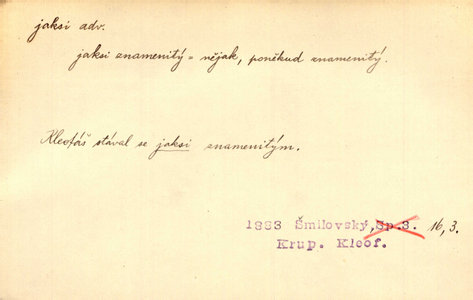 jaksi adv.
jaksi znamenitý = nějak, poněkud znamenitý.
Kleofáš stával se jaksi znamenitým.
1883 Šmilovský, Sp.3. 16, 3.
Krup. Kleof.